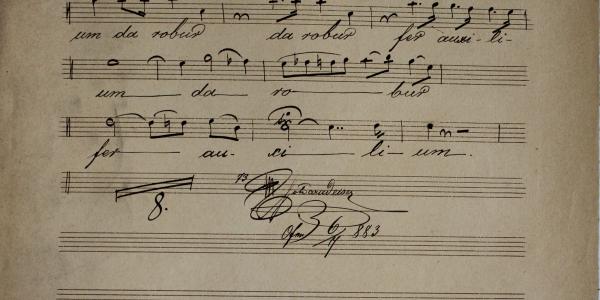 um da robur da robur fer auxi-li-
um da ro bur
fer au- xi li- um.
8.
6 883